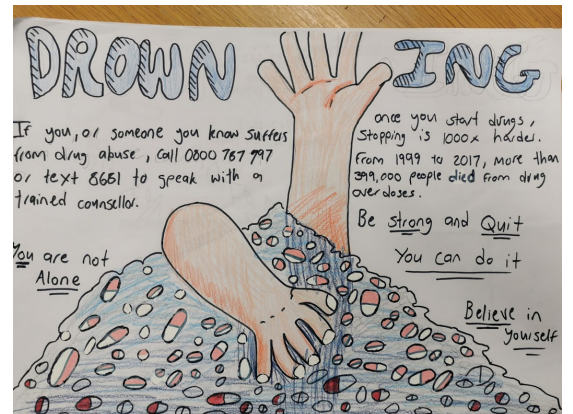 DROWNING
If you, or someone you know suffers
from drug abuse, call 0800 787 797
or text 8681 to speak with a
trained counsellor.
You are not
Alone
once you start drugs,
stopping is 1000x harder.
From 1999 to 2017, more than
399,000 people died from drug
overdoses.
Be strong and Quit
You can do it
Believe in
yourself